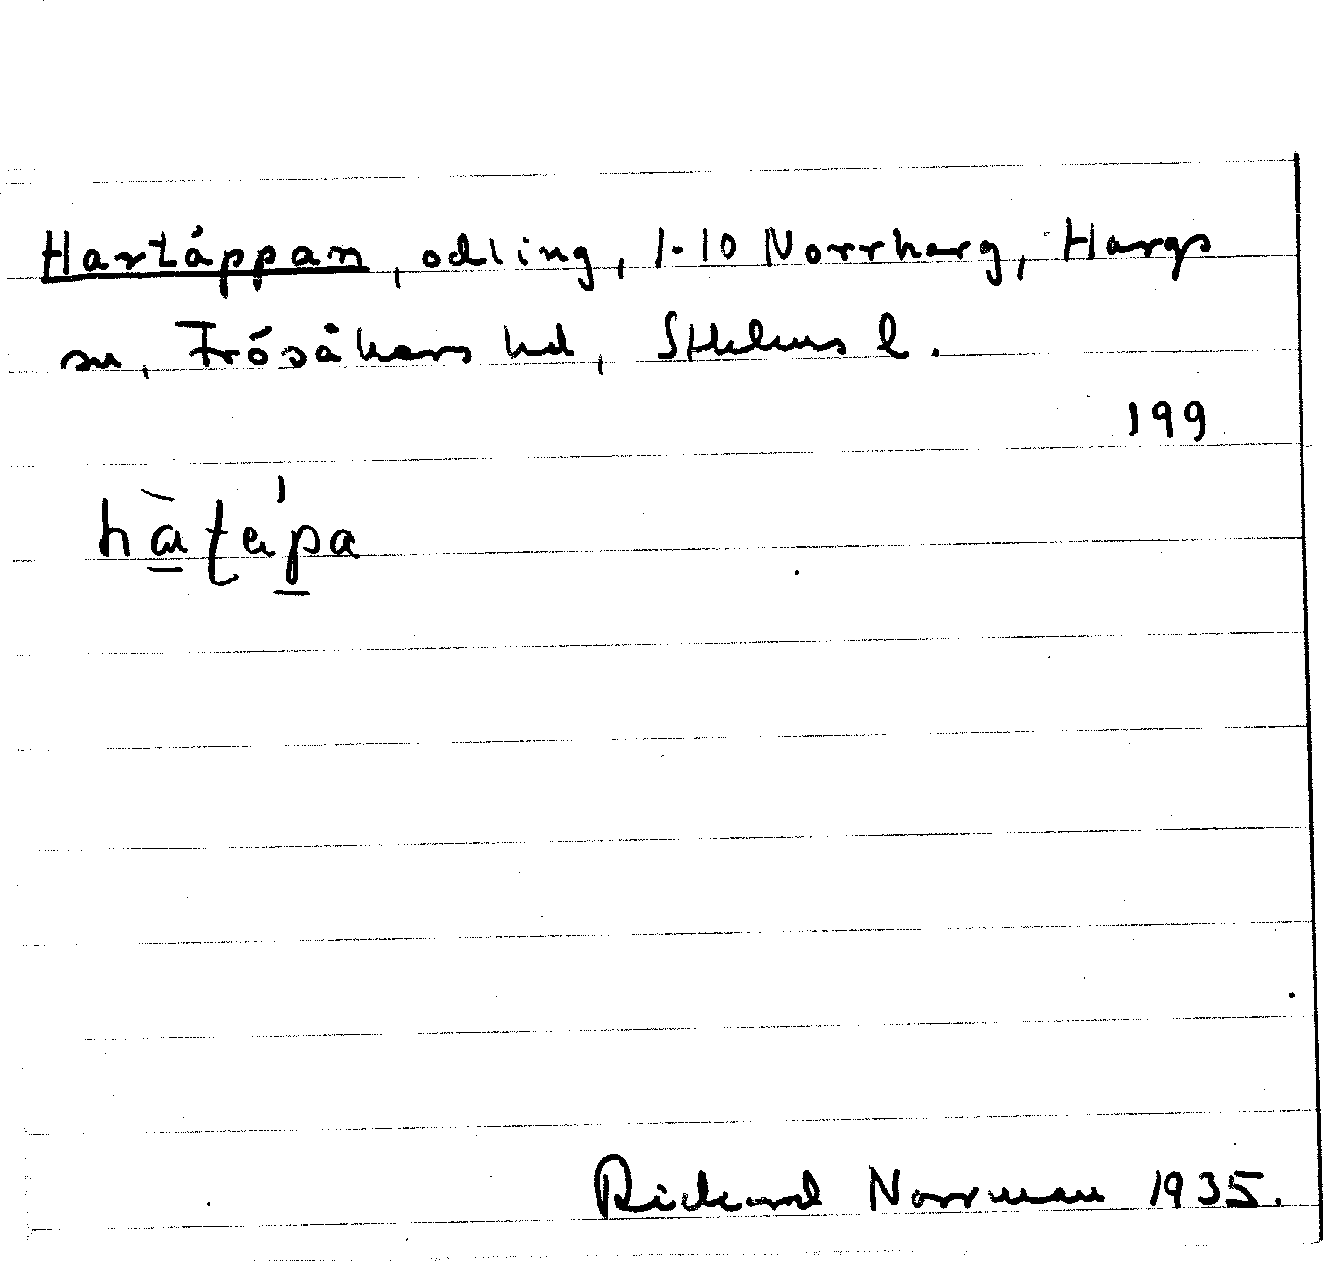 Hartäppan, odling, 1-10 Norrharg, Hargs
sn, Frösåkers hd, Sthlms l.
199
Rickard Norrman 1935.